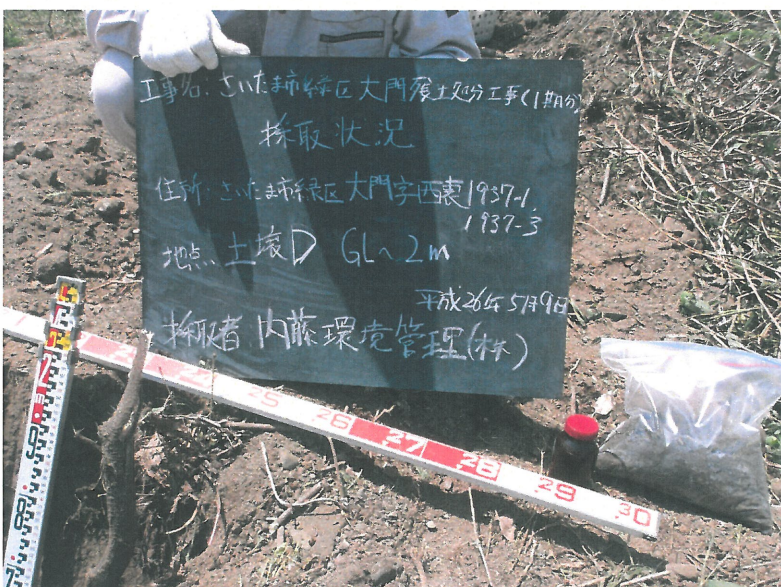 工事名:さいたま市緑区大門残土処分工事(1期分)
採取状況
住所:さいたま市緑区大門字西裏1937-1,
1937-3
地点 土壌D GL~2m
平成26年5月9日
採取者 内藤環境管理(株)
25 26 27 28 29 30